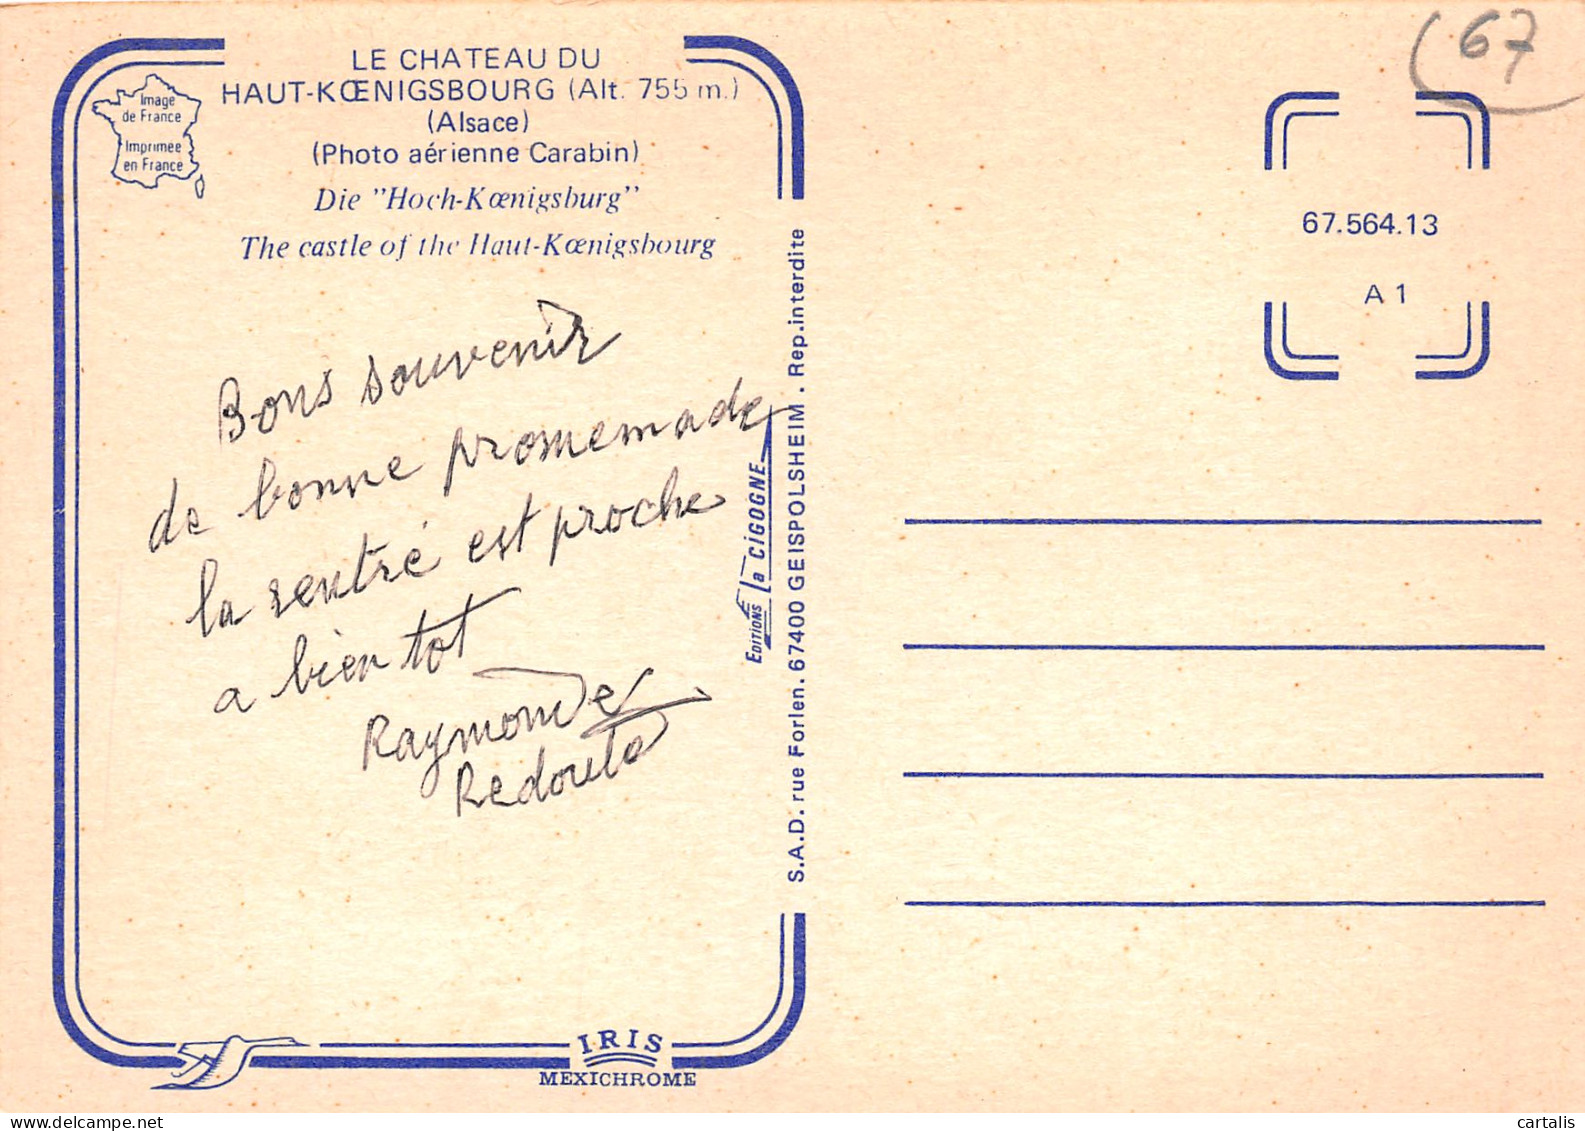 67
LE CHATEAU DU
HAUT-KŒNIGSBOURG (Alt. 755 m.)
(Alsace)
(Photo aérienne Carabin)
Die "Hoch-Kœnigsburg"
The castle of the Haut-Kœnigsbourg
Image
de France
Imprimée
en France
Bons souvenir
de bonne promemade
la rentré est proche
a bien tot
Raymonde
Redoute
EDITIONS la CIGOGNE
S.A.D. rue Forlen. 67400 GEISPOLSHEIM . Rep.interdite
67.564.13
A 1
IRIS
MEXICHROME
delcampe.net
cartalis